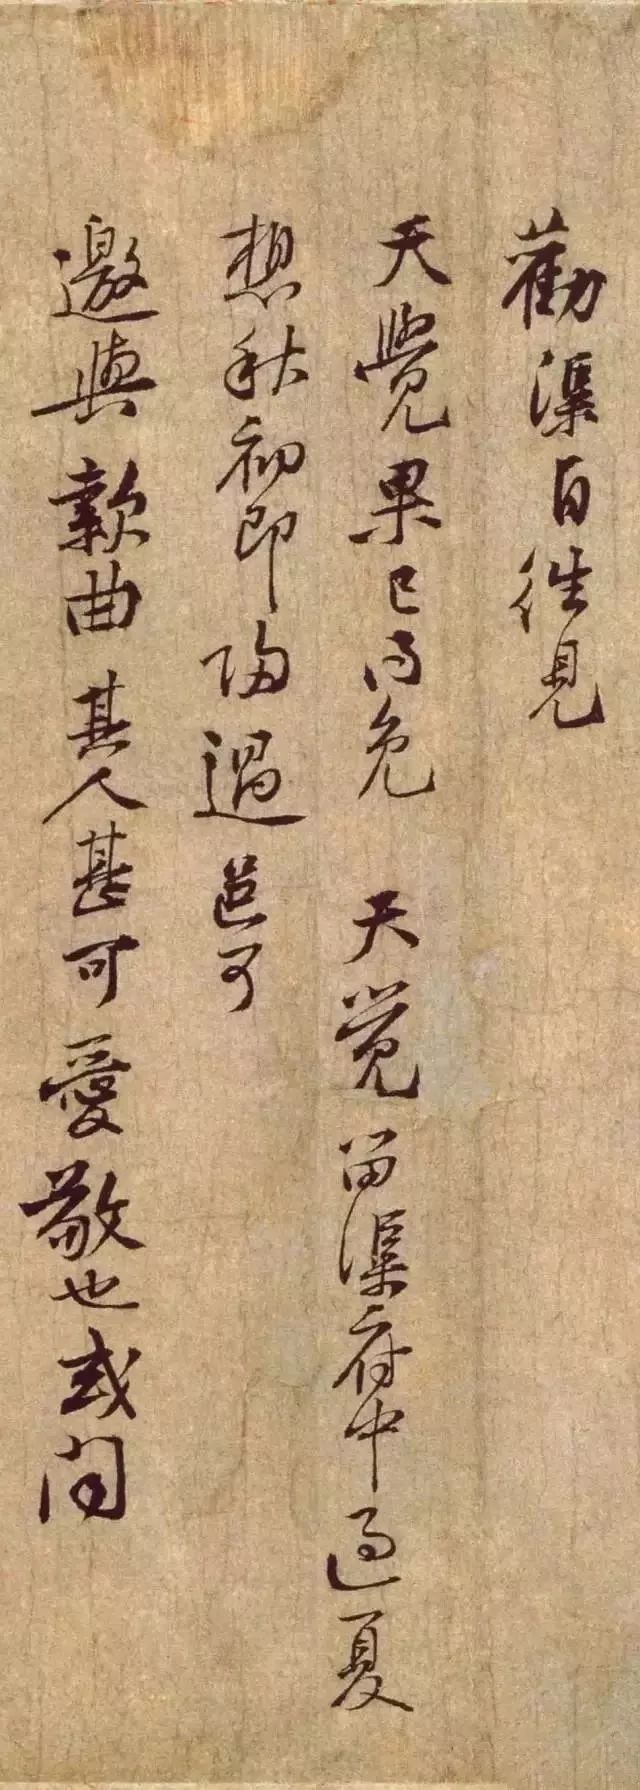 勸渠自往見
天覺果已得免 天覺留渠府中過夏
想秋初即歸過邑可
邀與款曲其人甚可愛敬也或問